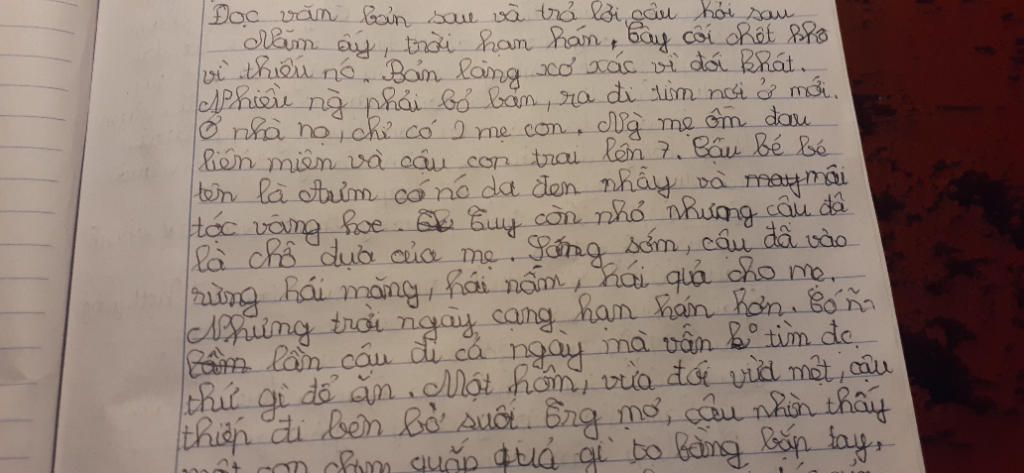 Đọc văn bản sau và trả lời câu hỏi sau
Năm ấy, trời hạn hán, cây cối chết khô
vì thiếu nó. Bản làng xơ xác vì đói khát.
Nhiều ng phải bỏ bản, ra đi tìm nơi ở mới.
Ở nhà nọ, chỉ có 2 mẹ con. Ng mẹ ốm đau
liên miên và cậu con trai lên 7. Cậu bé bé
tên là có nó da đen nhẫy và mái
tóc vàng hoe. Tuy còn nhỏ nhưng cậu đã
là chỗ dựa của mẹ. Sáng sớm, cậu đã vào
rừng hái măng, hái nấm, hái quả cho mẹ.
Nhưng trời ngày càng hạn hán hơn. Có n~
lần cậu đi cả ngày mà vẫn k° tìm đc
thứ gì để ăn. Một hôm, vừa đói vừa mệt, cậu
thiếp đi bên bờ suối. Ông mơ, cậu nhìn thấy
một con chim quắp quả gì to bằng bắp tay,